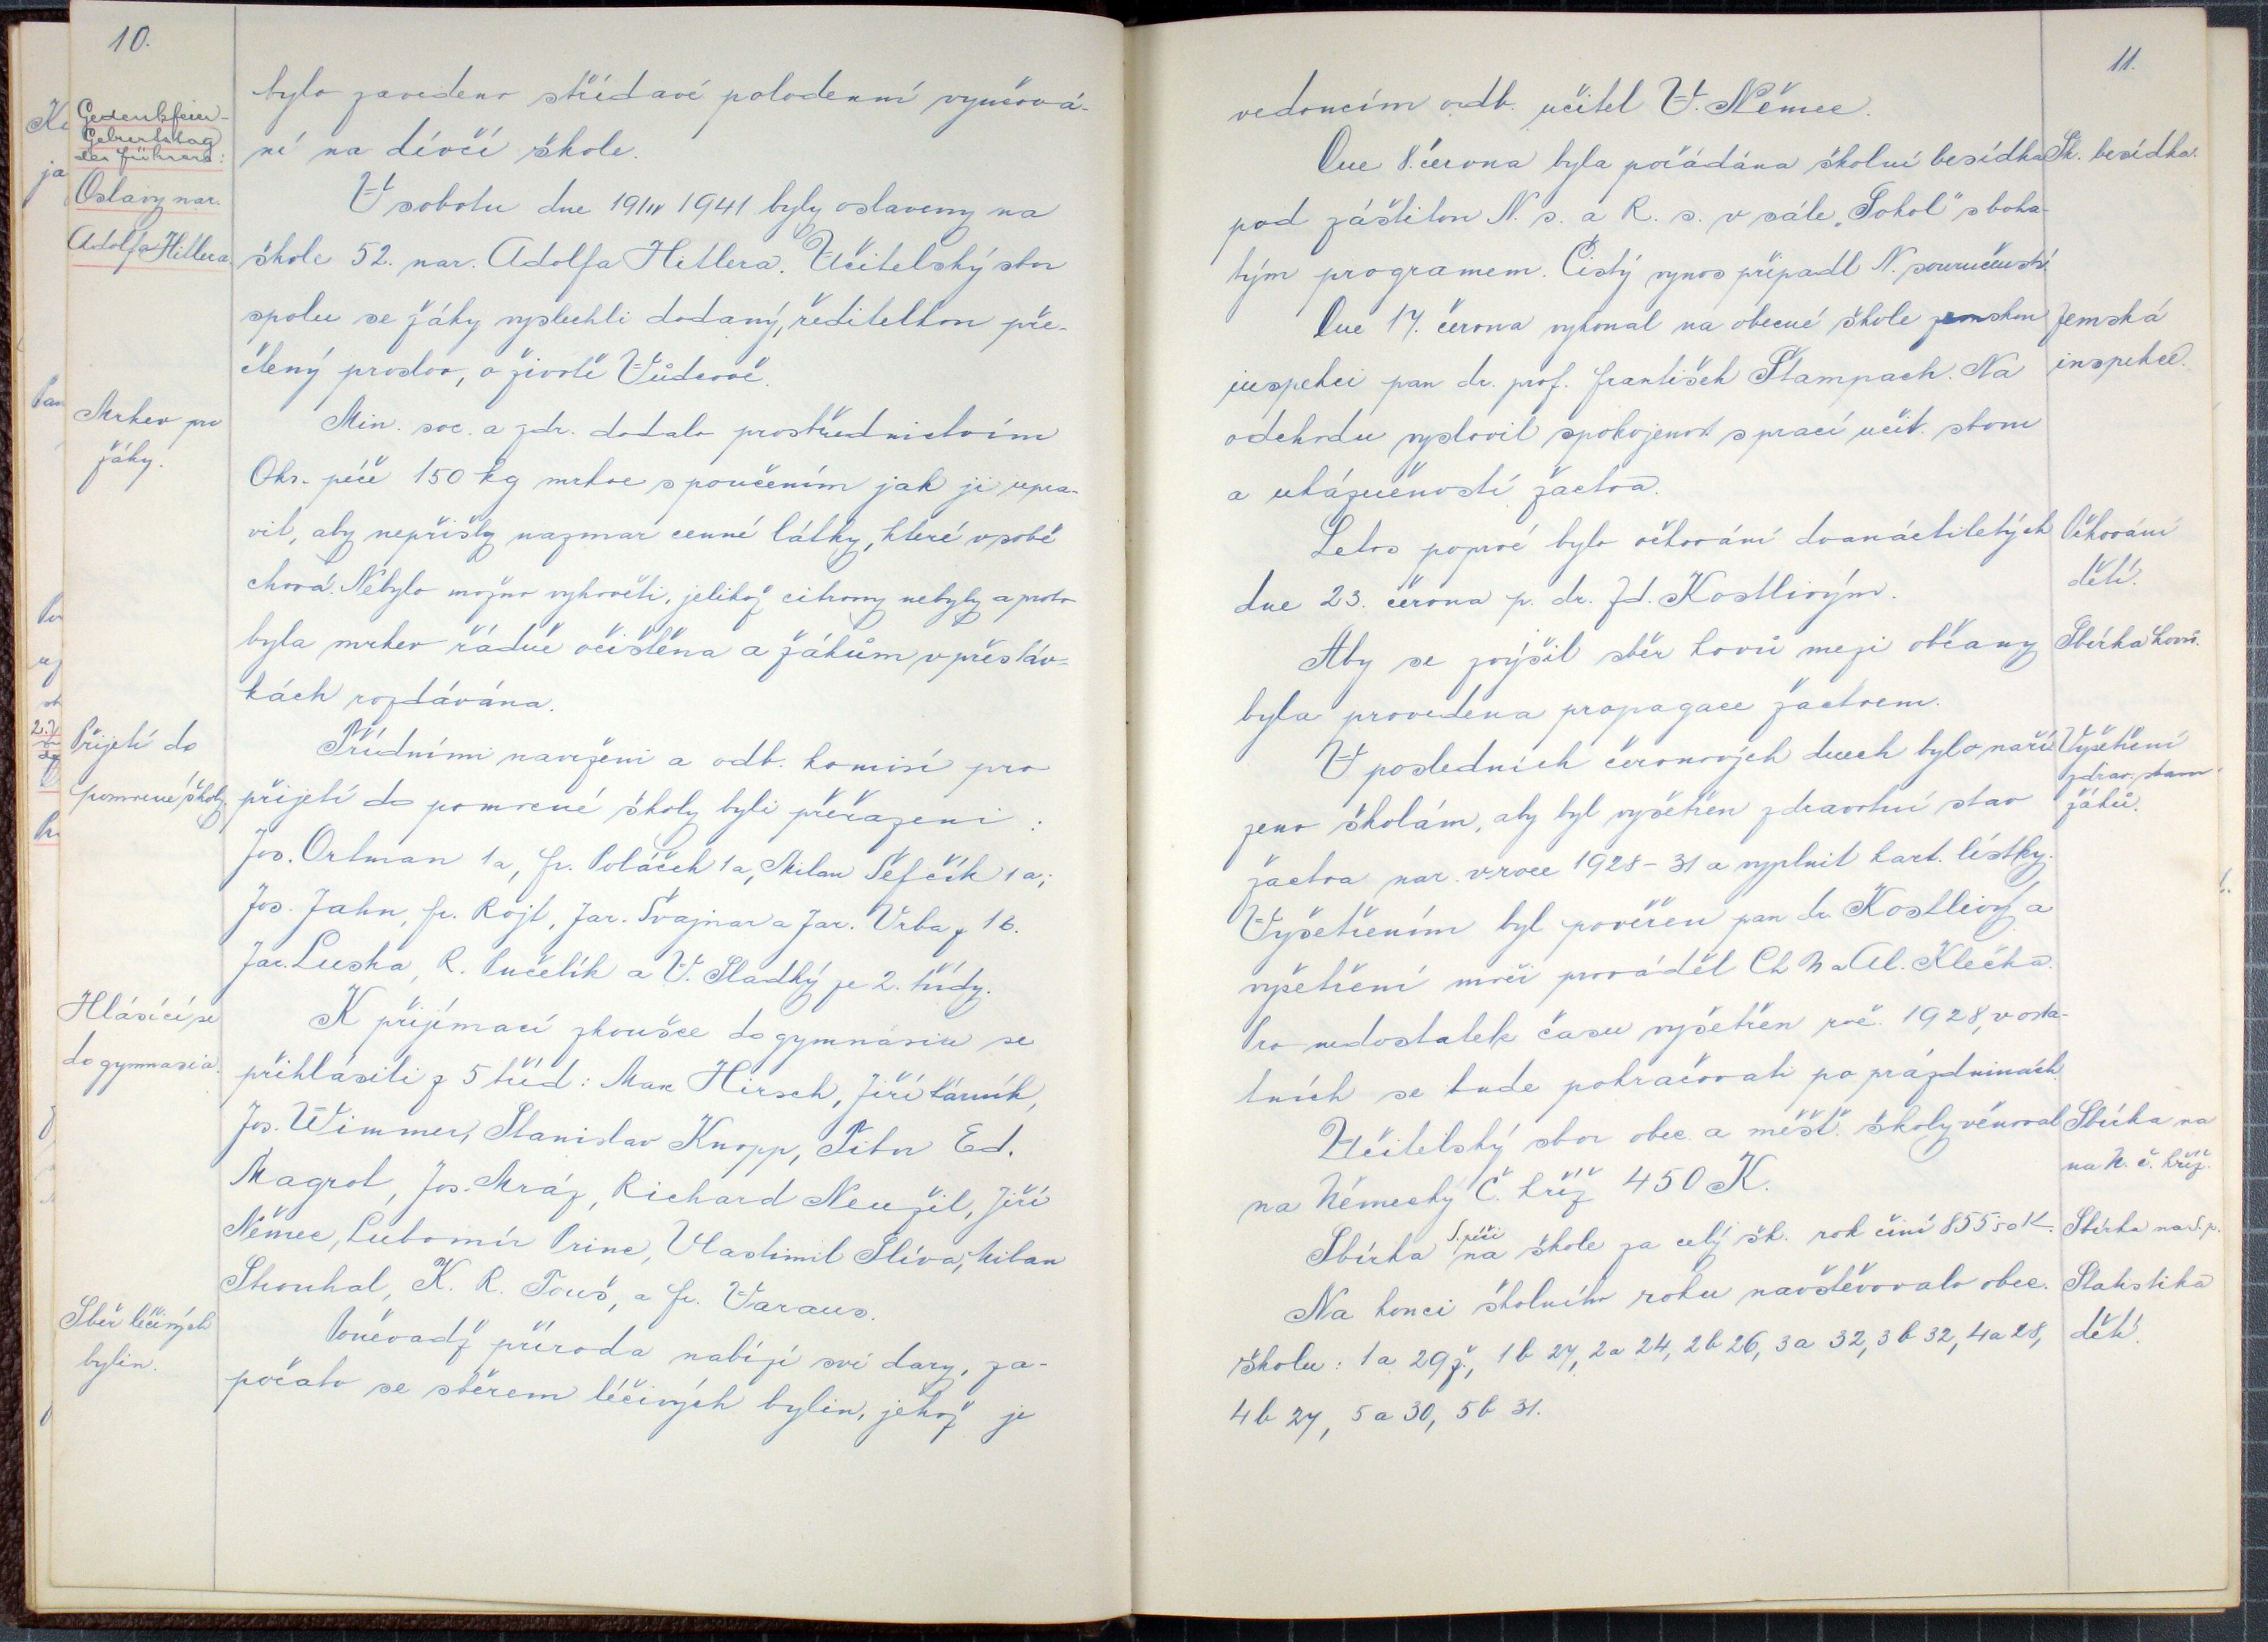 10.
Gedenkfeier-
Geburtstag
des Führers:
Oslavy nar.
Adolfa Hitlera.
bylo zavedeno střídavé polodenní vyučová-
ní na dívčí škole.
V sobotu dne 19/IV 1941 byly oslaveny na
škole 52. nar. Adolfa Hitlera. Učitelský sbor
spolu se žáky vyslechli dodaný, ředitelkou pře-
čtený proslov, o životě Vůdcově.
Mrkev pro
žáky.
Min. soc. a zdr. dodalo prostřednictvím
Okr. péče 150 kg mrkve s poučením jak ji upra-
vit, aby nepřišly nazmar cenné látky, které v sobě
chová. Nebylo možno vyhověti, jelikož citrony nebyly a proto
byla mrkev řádně očištěna a žákům v přestáv-
kách rozdávána.
Přijetí do
pomocné školy.
Třídními navrženi a odb. komisí pro
přijetí do pomocné školy byli přeřazeni :
Jos. Ortman 1a, Fr. Poláček 1a, Milan Šefčík 1a;
Jos. Jahn, Fr. Rojt, Jar. Švajnar a Jar. Vrba z 1b.
Jar. Luska, R. Pučelík a V. Sladký ze 2. třídy.
Hlásící se
do gymnasia.
K přijímací zkoušce do gymnasia se
přihlásili z 5 tříd: Max Hirsch, Jiří Kárník,
Jos. Wimmer, Stanislav Knopp, Tibor Ed.
Magrot, Jos. Mráz, Richard Neužil, Jiří
Němec, Lubomír Princ, Vlastimil Slíva, Milan
Strouhal, K. R. Touš, a Fr. Varaus.
Sběr léčivých
bylin.
Poněvadž příroda nabízí své dary, za-
počato se sběrem léčivých bylin, jehož je
11.
vedoucím odb. učitel V. Němec.
Dne 8. června byla pořádána školní besídka
Šk. besídka.
pod záštitou N. s. a R. s. v sále „Sokol" s boha-
tým programem. Čistý výnos připadl N. souručenství.
Dne 17. června vykonal na obecné škole zemskou
Zemská
inspekce.
inspekci pan dr. prof. František Štampach. Na
odchodu vyslovil spokojenost s prací učit. sboru
a ukázněností žactva.
Letos poprvé bylo očkování dvanáctiletých
Očkování
dětí.
dne 23. června p. dr. Zd. Kostlivým.
Aby se zvýšil sběr kovů mezi občany
Sbírka kovů.
byla provedena propagace žactvem.
V posledních červnových dnech bylo naří-
Vyšetření
zdrav. stavu
žáků.
zeno školám, aby byl vyšetřen zdravotní stav
žactva nar. v roce 1928-31 a vyplnit kart. lístky.
Vyšetřením byl pověřen pan dr Kostlivý a
vyšetření moči prováděl Al. Klečka.
Pro nedostatek času vyšetřen roč. 1928, v osta-
tních se bude pokračovati po prázdninách.
Učitelský sbor obec. a měšť. školy věnoval
Sbírka na
na N. č. kříž.
na Německý Č. kříž 450 K.
Sbírka S. péči na škole za celý šk. rok činí 855.50 K.
Sbírka na S. p.
Na konci školního roku navštěvovalo obec.
Statistika
dětí.
školu: 1a 29 ž., 1b 27, 2a 24, 2b 26, 3a 32, 3b 32, 4a 28,
4b 27, 5a 30, 5b 31.